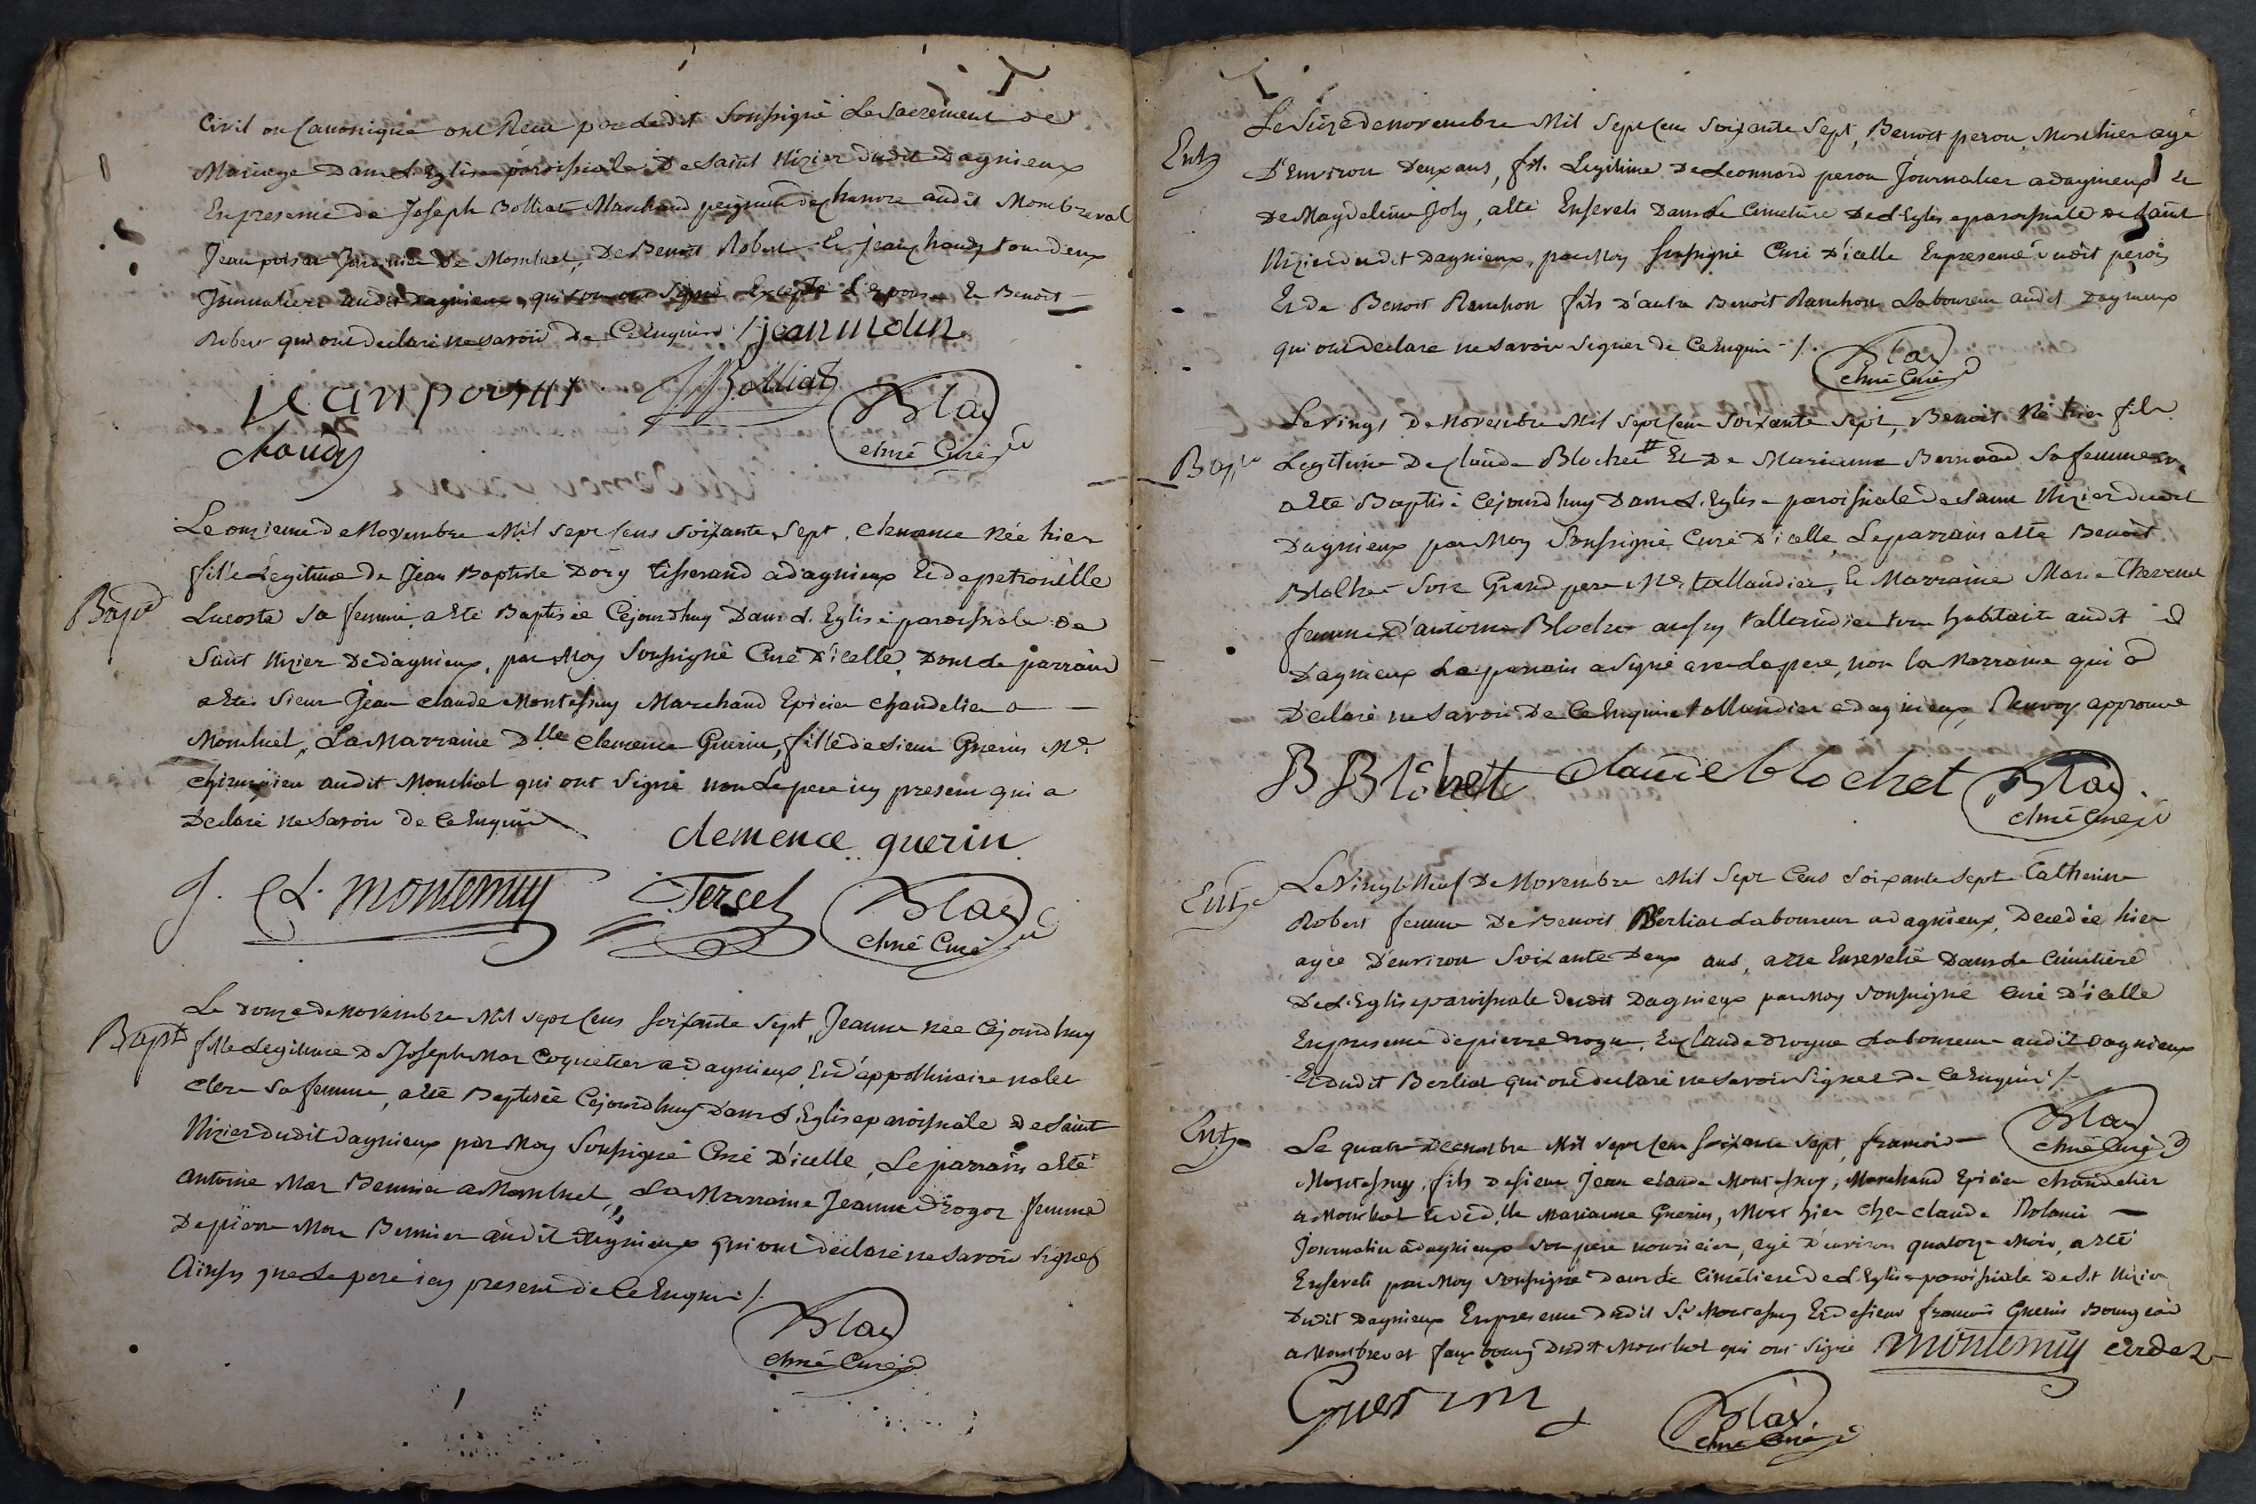 Civil ou Canonique ont Reçu par Ledit Soussigné Le Sacrement de
Mariage Dans L'Eglise paroissiale De Saint Nizier dudit Dagnieux
En presence de Joseph Bolliat Marchand peigneur de chanvre audit
Jean poisat De Montluel, De Benoit Robert Et jean chaudy tous deux
Journaliers audit Dagnieux, qui ont signé Excepté L'epouse Et Benoit
Robert qui ont declaré ne savoir De Ce Enquis ./. jean molin
jean poisat J Bolliat Blad
chaudy ctmé Curé
Le onzieme de Novembre Mil sept Cens soixante Sept, clemence Née hier
fille Légitime de Jean Baptiste Dory tisserand a dagnieux Et de petronille
Bapt
Lacoste Sa femme, a Eté Baptisée Cejourdhuy Dans L'Eglise paroissiale de
Saint Nizier De dagnieux, par Moy Soussigné Curé D'icelle, Dont Le parrain
a Eté Sieur Jean claude Montessuy Marchand Epicier chandelier a
Montluel, La Marraine Dlle Clemence Guerin, fille de Sieur Guerin Me
chirurgien audit Montluel qui ont Signé non Le pere icy present qui a
Declaré ne Savoir de Ce Enquis
clemence guerin
J. Cl. montessuy Tercel Blad
ctmé Curé
Le douze de Novembre Mil sept Cens soixante Sept, Jeanne née Cejourdhuy
Bapt
fille Legitime De Joseph Mar Coquetier a Dagnieux Et d'appollinaire
Sa femme, a Eté Baptisée Cejourdhuy Dans L'Eglise paroissiale De Saint
Nizier dudit dagnieux par Moy Soussigné Curé D'icelle, Le parrain a Eté
antoine Mar a Montluel, La Marraine Jeanne femme
De pierre Mar audit Dagnieux qui ont declaré ne savoir signer
Ainsy que Le pere icy present de Ce Enquis ./.
Blad
ctmé Curé
Le Seize de novembre Mil Sept Cens Soixante Sept, Benoit peron, Mort hier agé
Ent
D'Environ Deux ans, fils Legitime De Leonnard peron Journalier a dagnieux Et
De Magdeleine Joly, a Eté Enseveli Dans Le Cimetiere De L'Eglise paroissiale de Saint
Nizier dudit Dagnieux, par Moy Soussigné Curé D'icelle En presence dudit peron
Et De Benoit Ranchon fils D'autre Benoit Ranchon Laboureur audit Dagnieux
qui ont declaré ne savoir signer de Ce Enquis ./.
Blad
ctmé Curé
Le vingt De Novembre Mil sept Cens Soixante Sept, Benoit Né hier fils
Bapt
Legitime De Claude Blochet # Et De Marianne Bernard Sa femme
a Eté Baptisé Cejourdhuy Dans L'Eglise paroissiale de Saint Nizier dudit
Dagnieux par Moy Soussigné Curé D'icelle, Le parrain a Eté Benoit
Blochet Son Grand pere Me tallandier, Et Marraine Marie Thevenet
femme D'antoine Blochet aussy tallandier tous habitants audit
Dagnieux Le parrain a signé avec Le pere, non la Marraine qui a
Declaré ne Savoir De Ce Enquis # tallandier a dagnieux, Renvoy approuvé
B Blochet claude blochet Blad
ctmé Curé
Ent
Le Vingt Neuf De Novembre Mil Sept Cens soixante Sept Catherine
Robert femme De Benoit Berliat Laboureur a dagnieux, Decedée hier
agée D'environ Soixante Deux ans, a Eté Ensevelie Dans Le Cimetiere
De L'Eglise paroissiale dudit Dagnieux par Moy Soussigné Curé D'icelle
En presence de pierre drogue, Et Claude drogue Laboureurs audit Dagnieux
Et dudit Berliat qui ont declaré ne savoir Signer De Ce Enquis ./.
Blad
ctmé Curé
Ent
Le quatre Decembre Mil sept Cens Soixante Sept, francois
Montessuy, fils de sieur Jean claude Montessuy, Marchand Epicier chandelier
a Montluel Et de dlle Marianne Guerin, Mort hier chez claude
Journalier a dagnieux Son pere nourricier, agé D'environ quatorze Mois, a Eté
Enseveli par Moy soussigné Dans Le Cimetiere de L'Eglise paroissiale De St Nizier
Dudit Dagnieux En presence dudit Sr Montessuy Et de sieur francois Guerin Bourgeois
a faux bourg Dudit Montluel qui ont signé montessuy
Guerin Blad
ctmé Curé